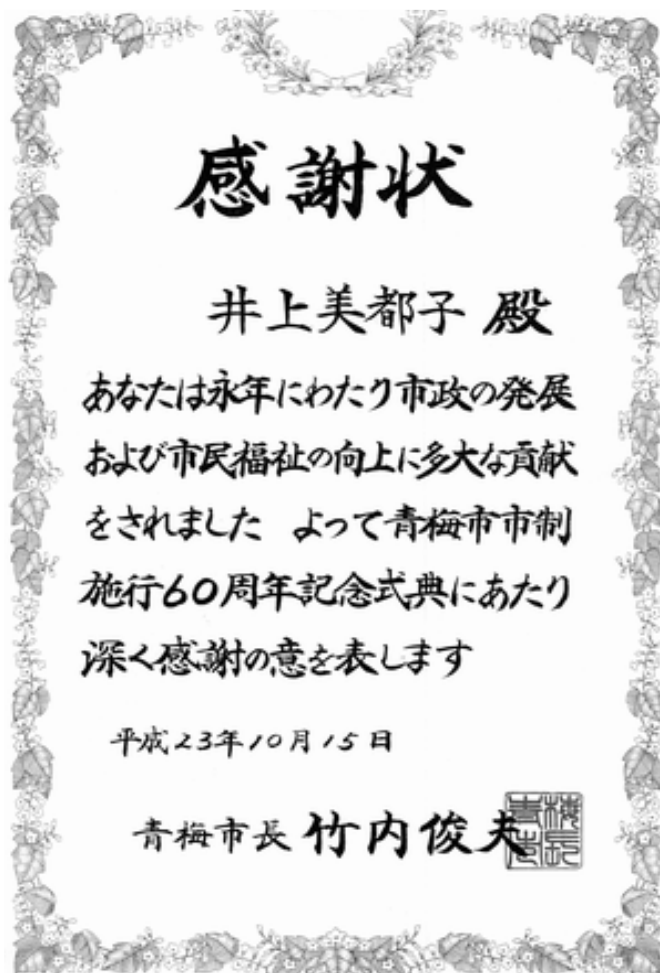 感謝状
井上美都子 殿
あなたは永年にわたり市政の発展
および市民福祉の向上に多大な貢献
をされました　よって青梅市市制
施行60周年記念式典にあたり
深く感謝の意を表します
平成23年10月15日
青梅市長 竹内俊夫